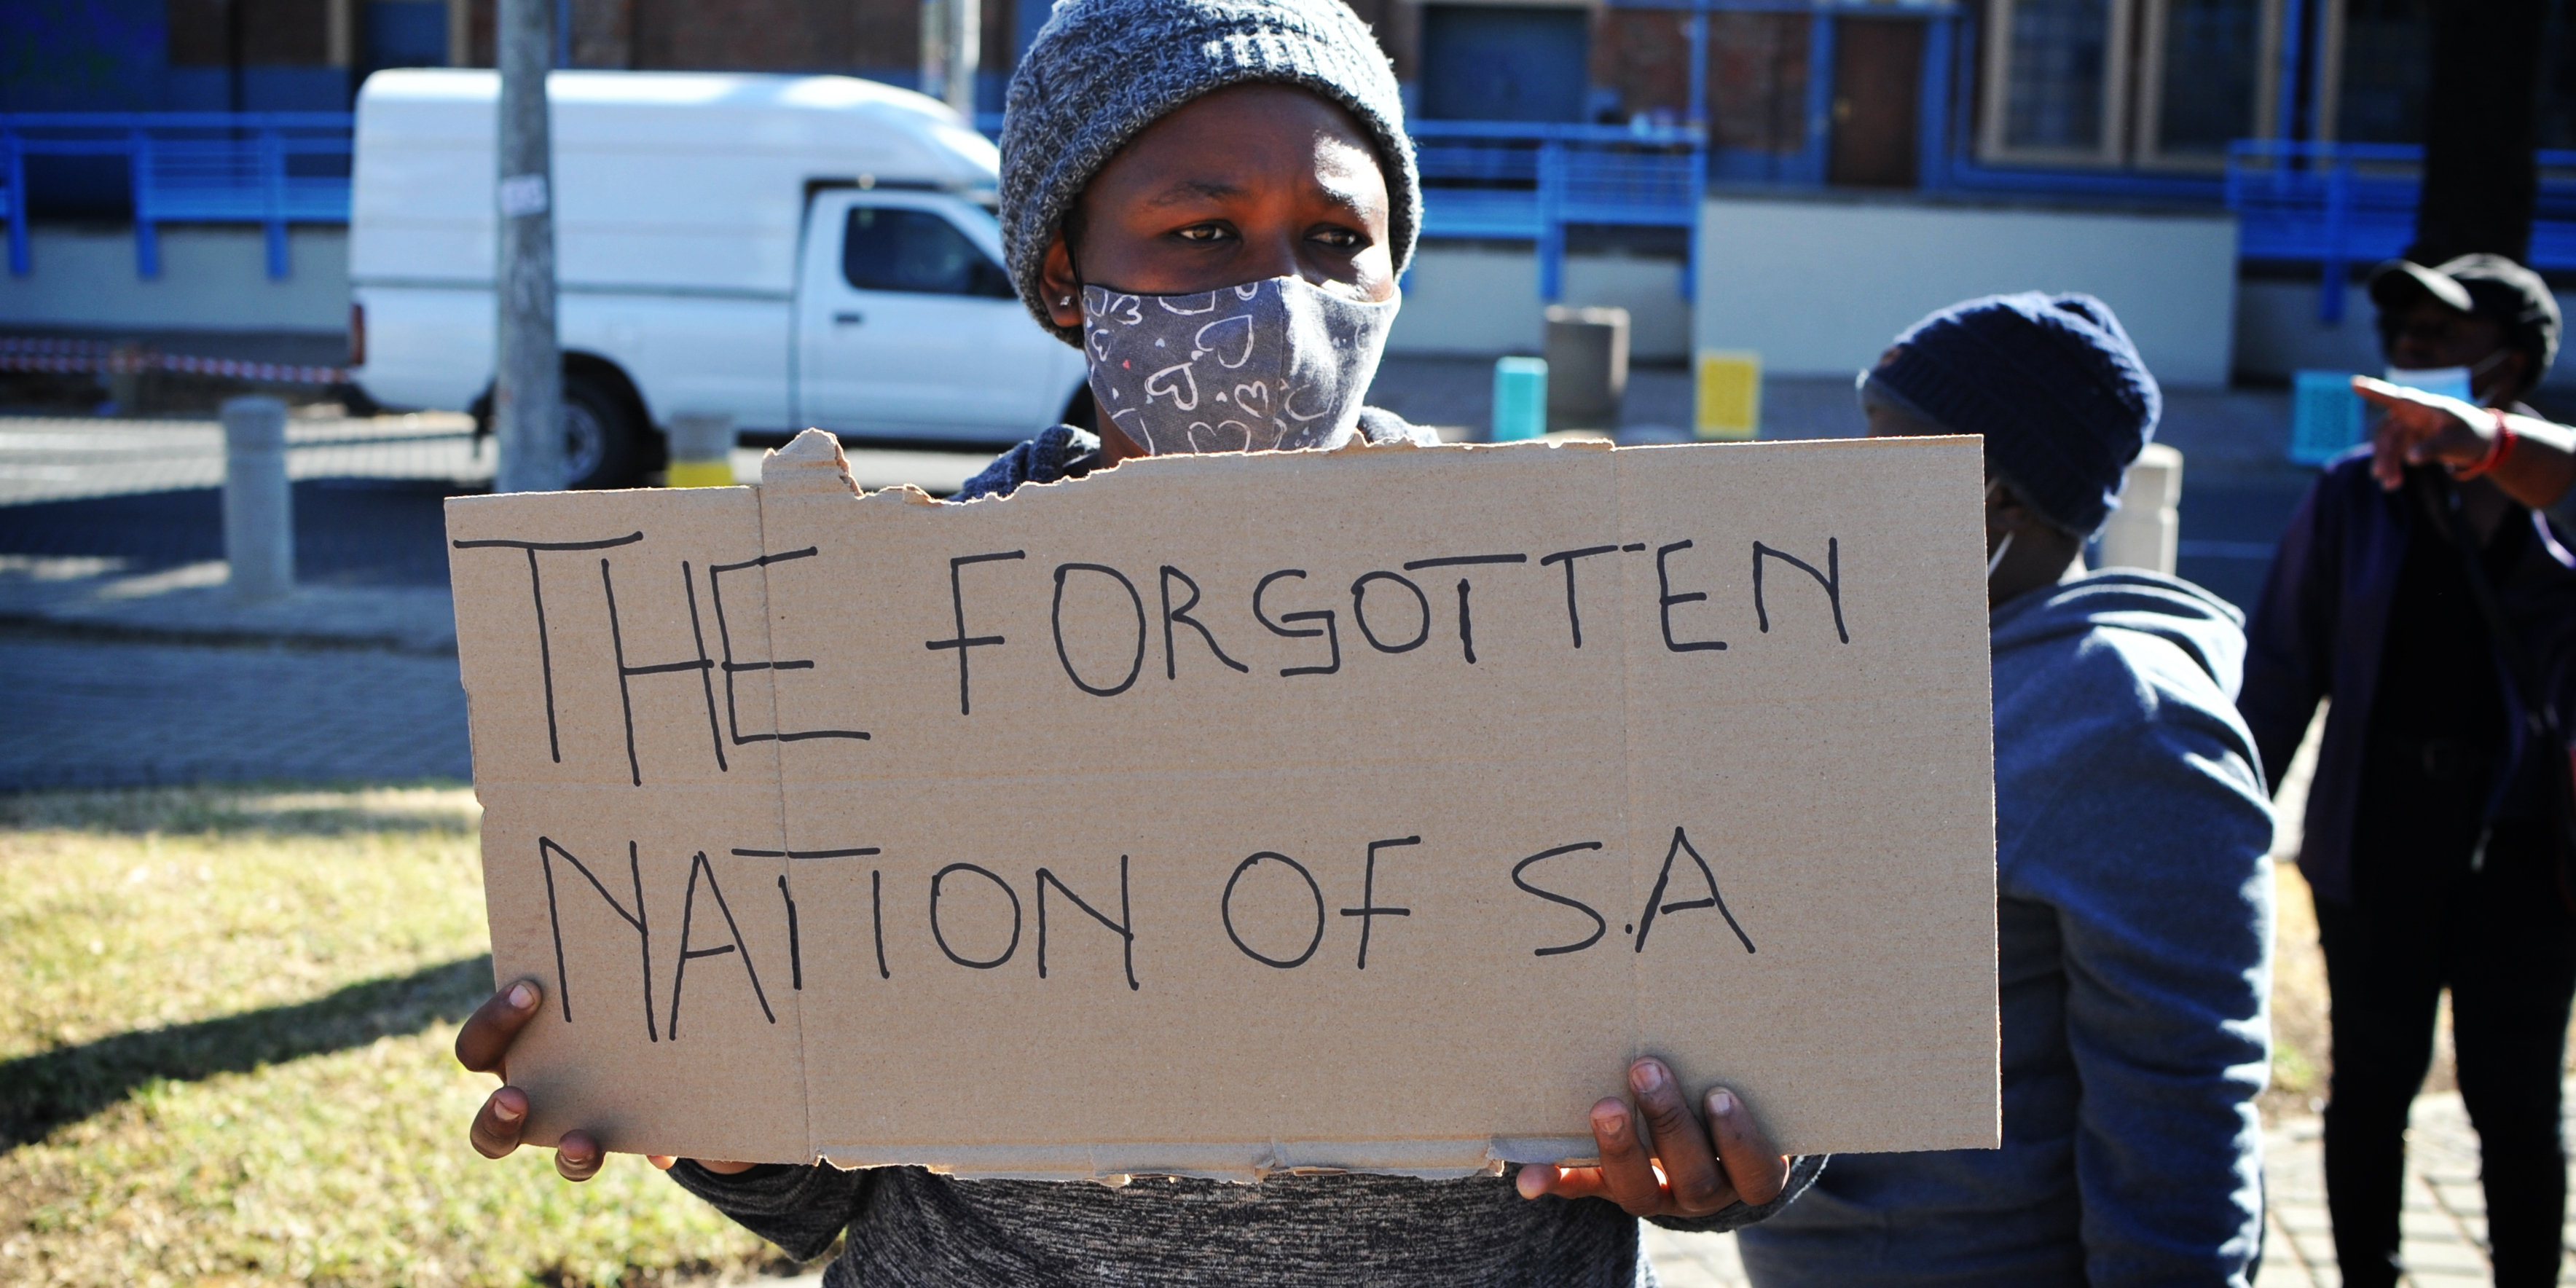 THE FORGOTTEN
NATION OF S.A